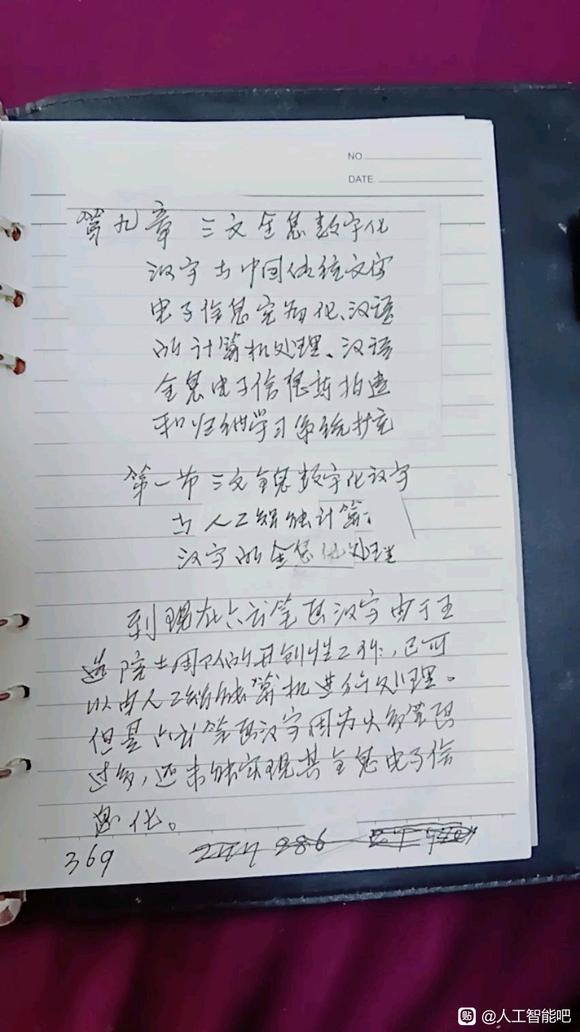 NO
DATE
第九章 三文全息数字化
汉字与中国传统文字
电子信息完为化、汉语
的计算机处理、汉语
全息电子信息转拍造
和归纳学习系统扩充
第一节 三文全息数字化汉字
与人工智能计算:
汉字的全息化处理
到现在六书笔画汉字由于王
选院士同人的开创性工作,已可
以由人工智能算机进行处理。
但是六书笔画汉字因为大多笔画
过多,还未能实现其全息电子信
息化。
369
286
贴 @人工智能吧